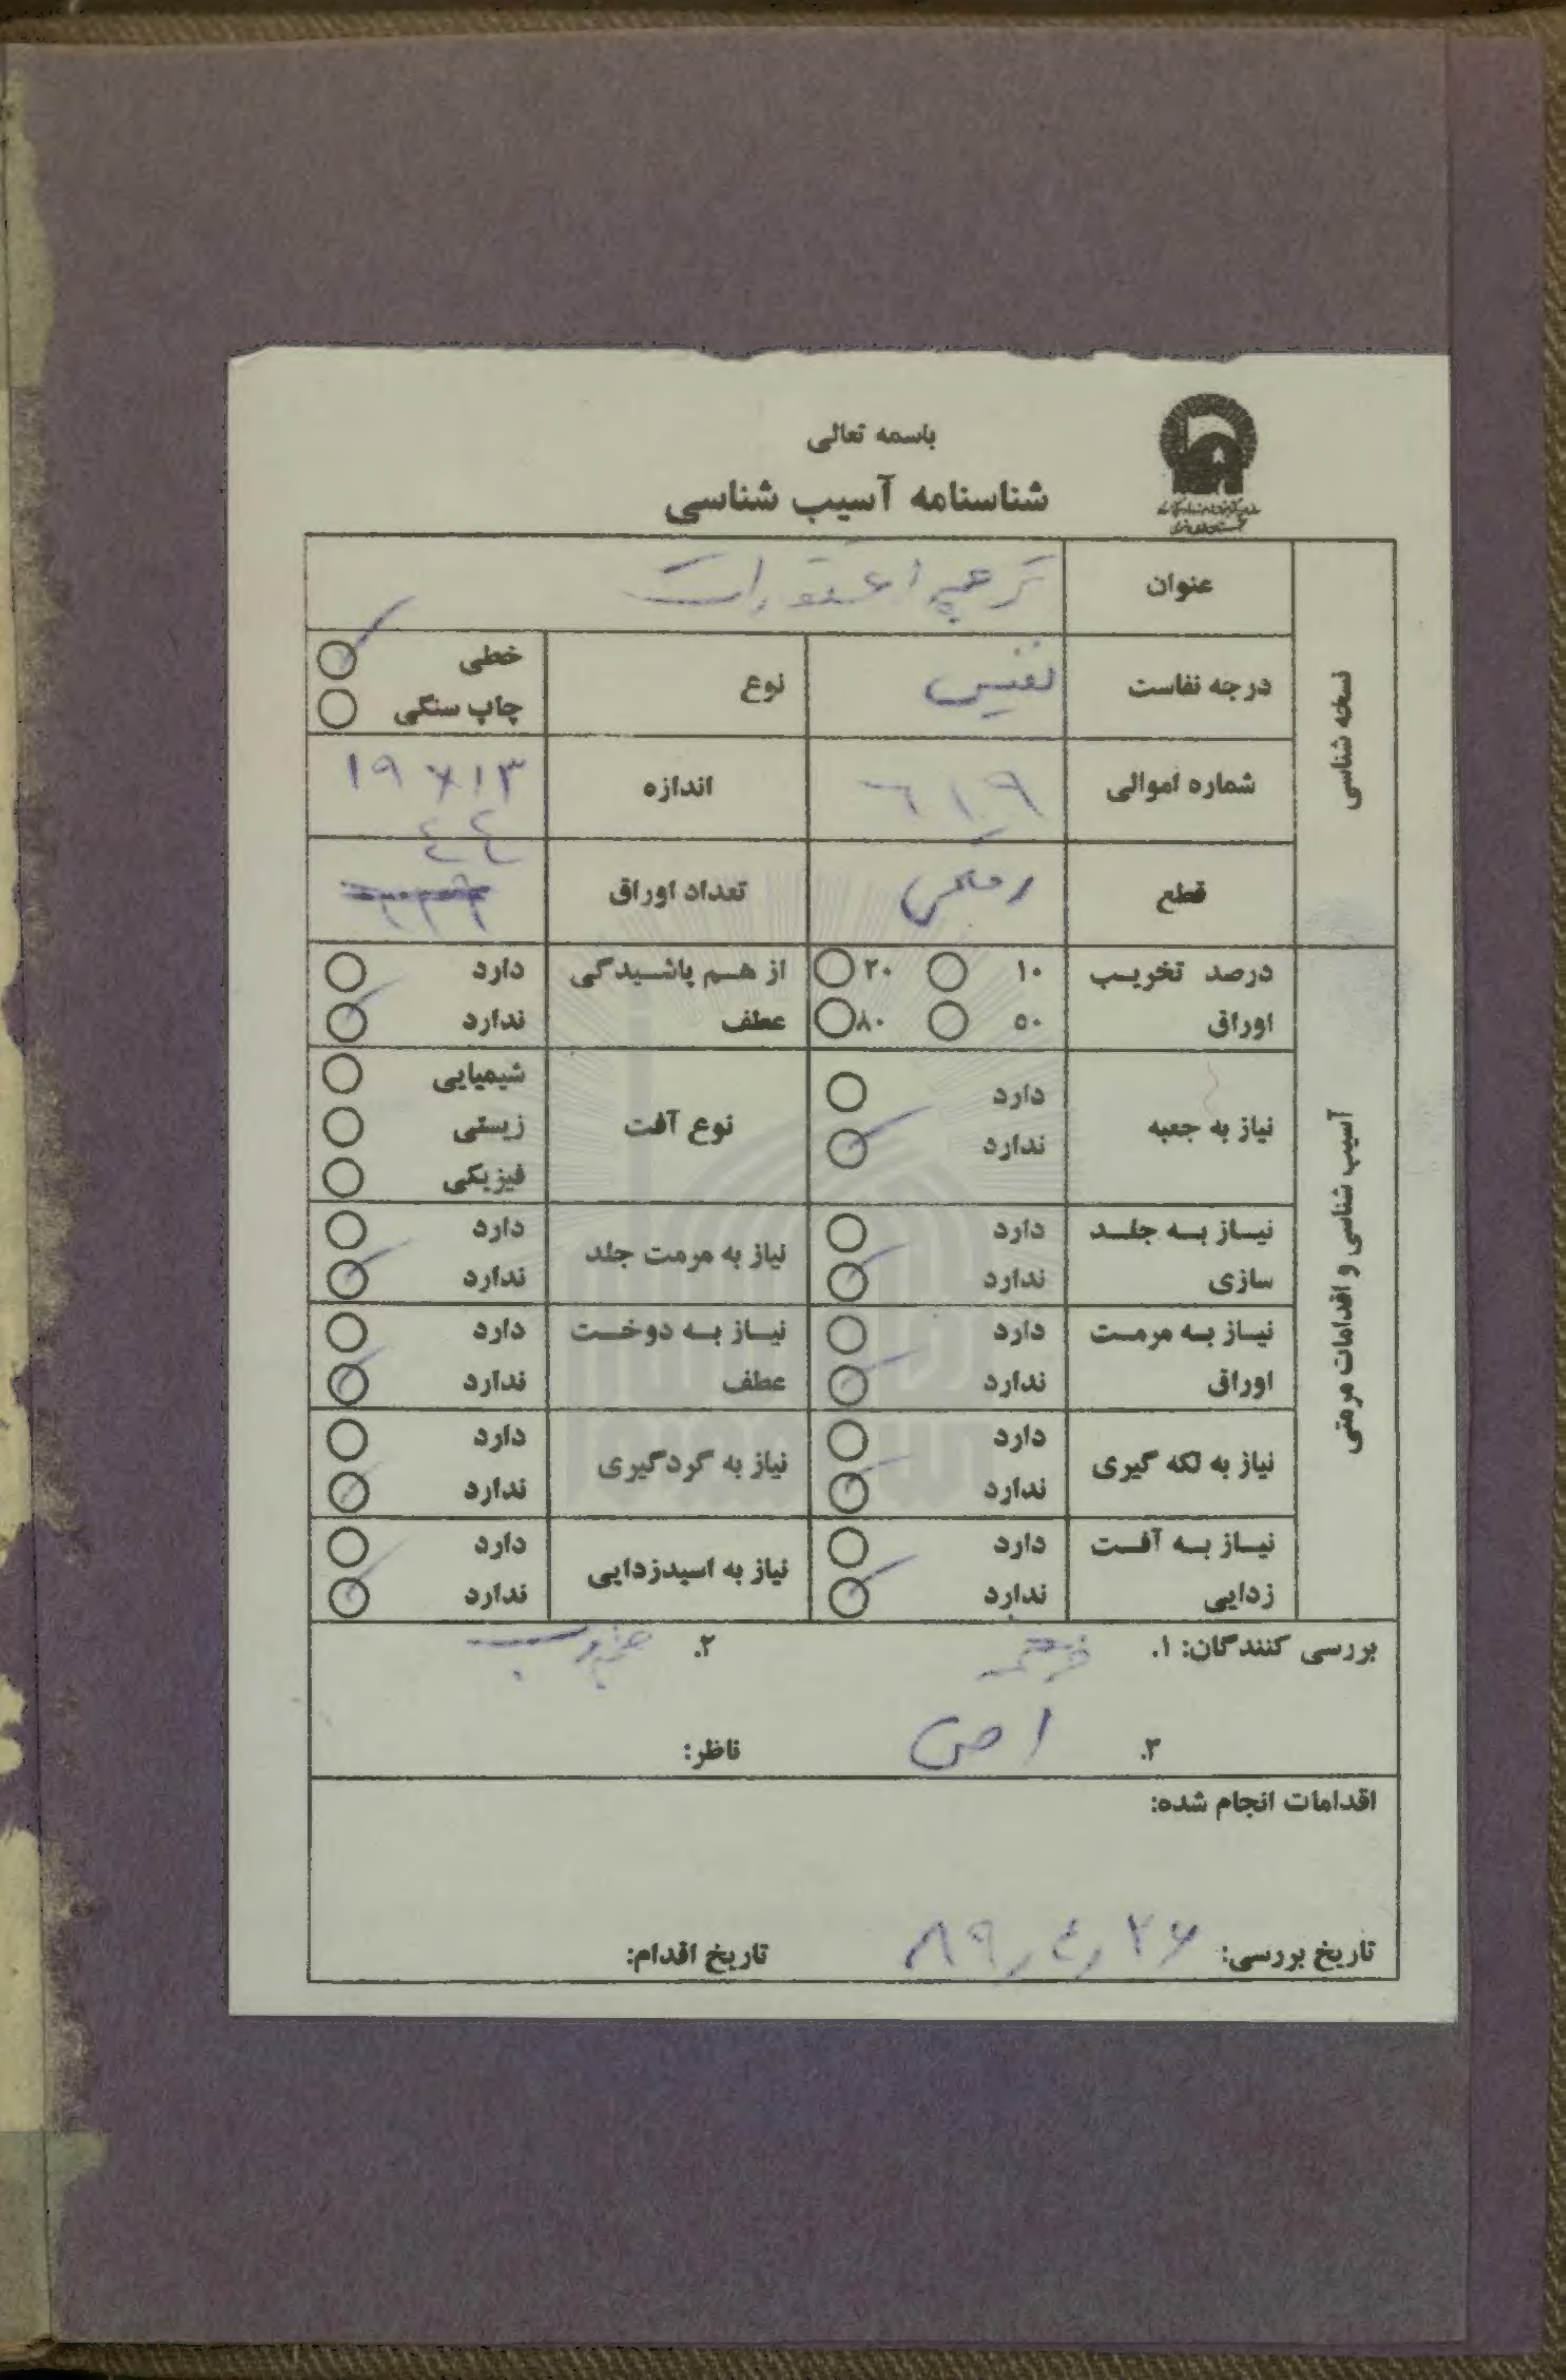 باسمه تعالی
شناسنامه آسیب شناسی
نسخه شناسی
عنوان ترجمه اعتقادات
درجه نفاست نفیس نوع خطی چاپ سنگی
شماره اموالی ٦١٩ اندازه ۱۹×۱۳
قطع رقعی تعداد اوراق ٤٤
آسیب شناسی و اقدامات مرمتی
درصد تخریب اوراق ۱۰ ۲۰ ۵۰ ۸۰ از هم پاشیدگی عطف دارد ندارد
نیاز به جعبه دارد ندارد نوع آفت شیمیایی زیستی فیزیکی
نیاز به جلد سازی دارد ندارد نیاز به مرمت جلد دارد ندارد
نیاز به مرمت اوراق دارد ندارد نیاز به دوخت عطف دارد ندارد
نیاز به لکه گیری دارد ندارد نیاز به گردگیری دارد ندارد
نیاز به آفت زدایی دارد ندارد نیاز به اسیدزدایی دارد ندارد
بررسی کنندگان: ۱. ۲.
۳. ناظر:
اقدامات انجام شده:
تاریخ بررسی: ۸۹٫٤٫۲۶ تاریخ اقدام: